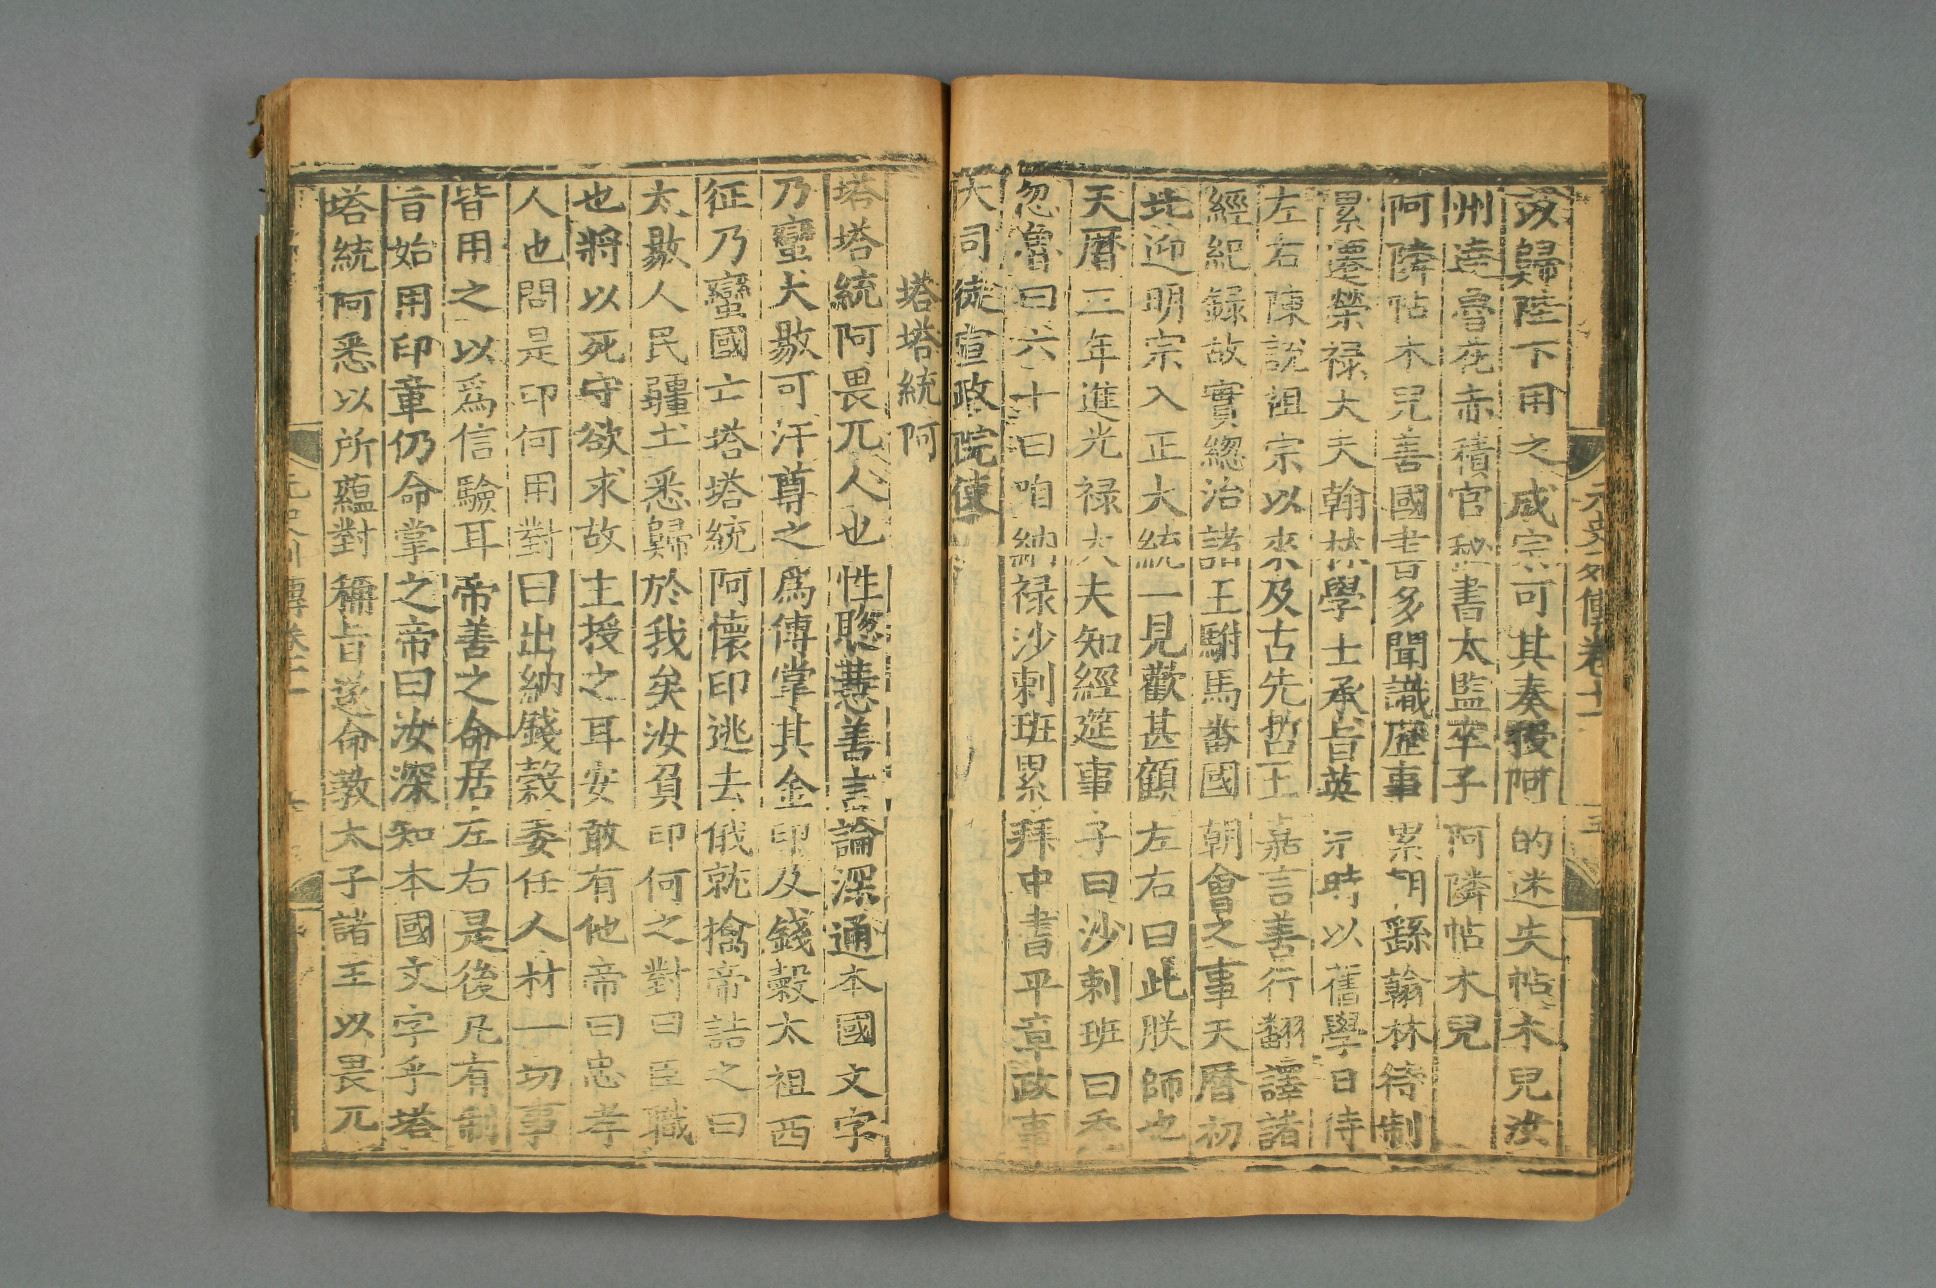 以歸陛下用之成宗可其奏授阿的迷失帖木兒汝
州達魯花赤積官秘書太監卒子阿隣帖木兒
阿隣帖木兒善國書多聞識歷事累朝繇翰林待制
累遷榮祿大夫翰林學士承旨英宗時以舊學日侍
左右陳說祖宗以來及古先哲王嘉言善行翻譯諸
經紀録故實緫治諸王駙馬番國朝會之事天曆初
北迎明宗入正大統一見歡甚顧左右曰此朕師也
天曆二年進光禄大夫知經筵事子曰沙剌班曰禿
忽魯曰六十曰咱納禄沙剌班累拜中書平章政事
大司徒宣政院使
塔塔統阿
塔塔統阿畏兀人也性聦慧善言論深通本國文字
乃蠻大敭可汗尊之爲傅掌其金印及錢穀太祖西
征乃蠻國亡塔塔統阿懷印逃去俄就擒帝詰之曰
太敭人民疆土悉歸於我矣汝負印何之對曰臣職
也將以死守欲求故主授之耳安敢有他帝曰忠孝
人也問是印何用對曰出納錢穀委任人材一切事
皆用之以爲信驗耳帝善之命居左右是後凡有制
旨始用印章仍命掌之帝曰汝深知本國文字乎塔
塔統阿悉以所蘊對稱旨遂命教太子諸王以畏兀
元史列傳卷十一
五